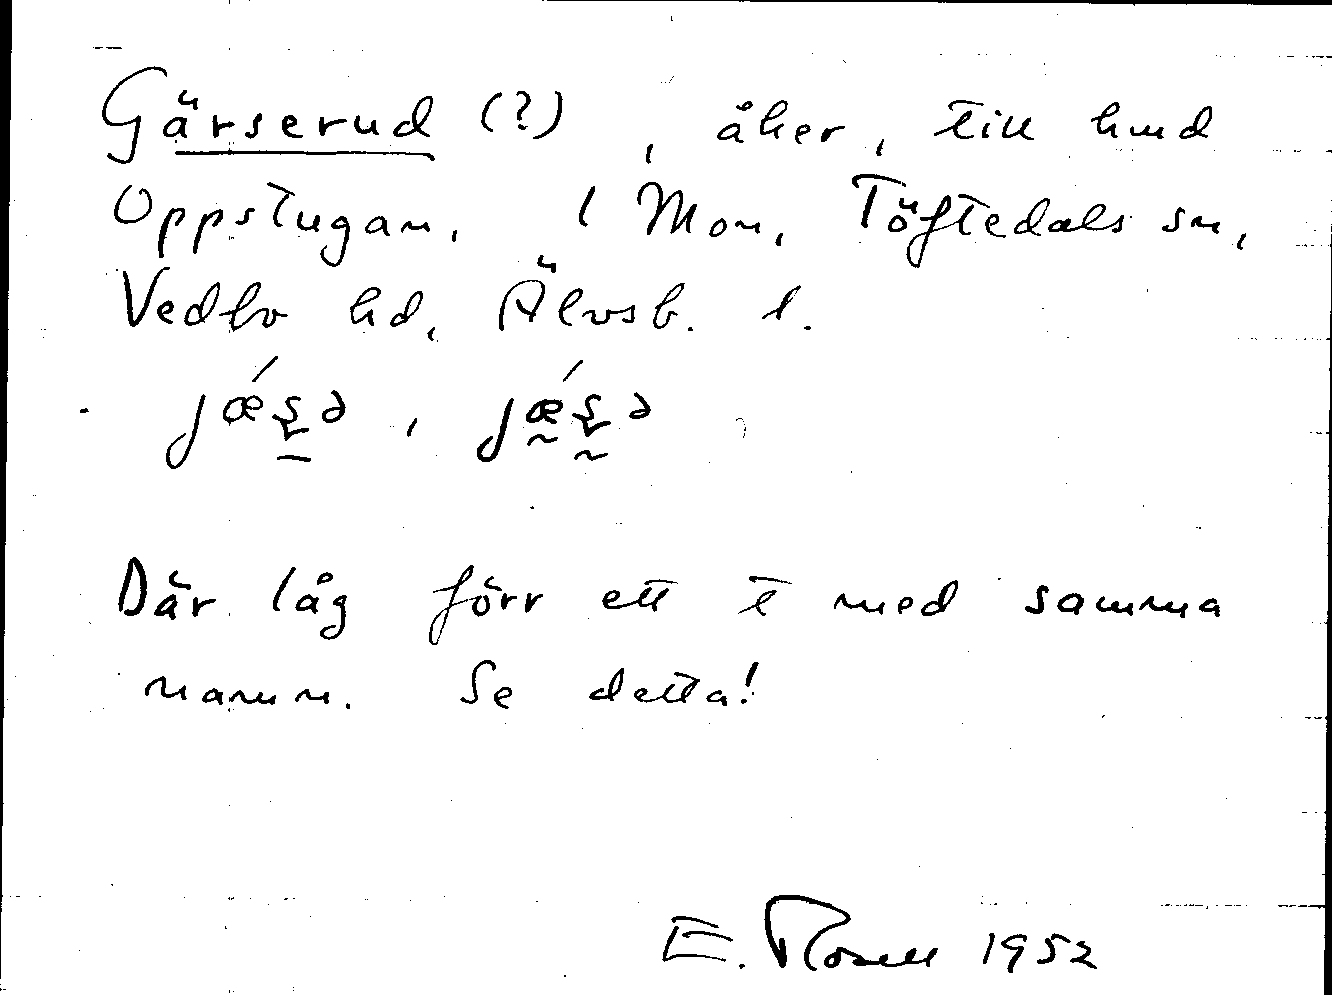 Gärserud (?), åker, till hmd
Oppstugan, i Mon, Töftedals sn,
Vedbo hd, Älvsb. l.
Där låg förr ett t med samma
namn. Se detta!
E. Rosell 1952